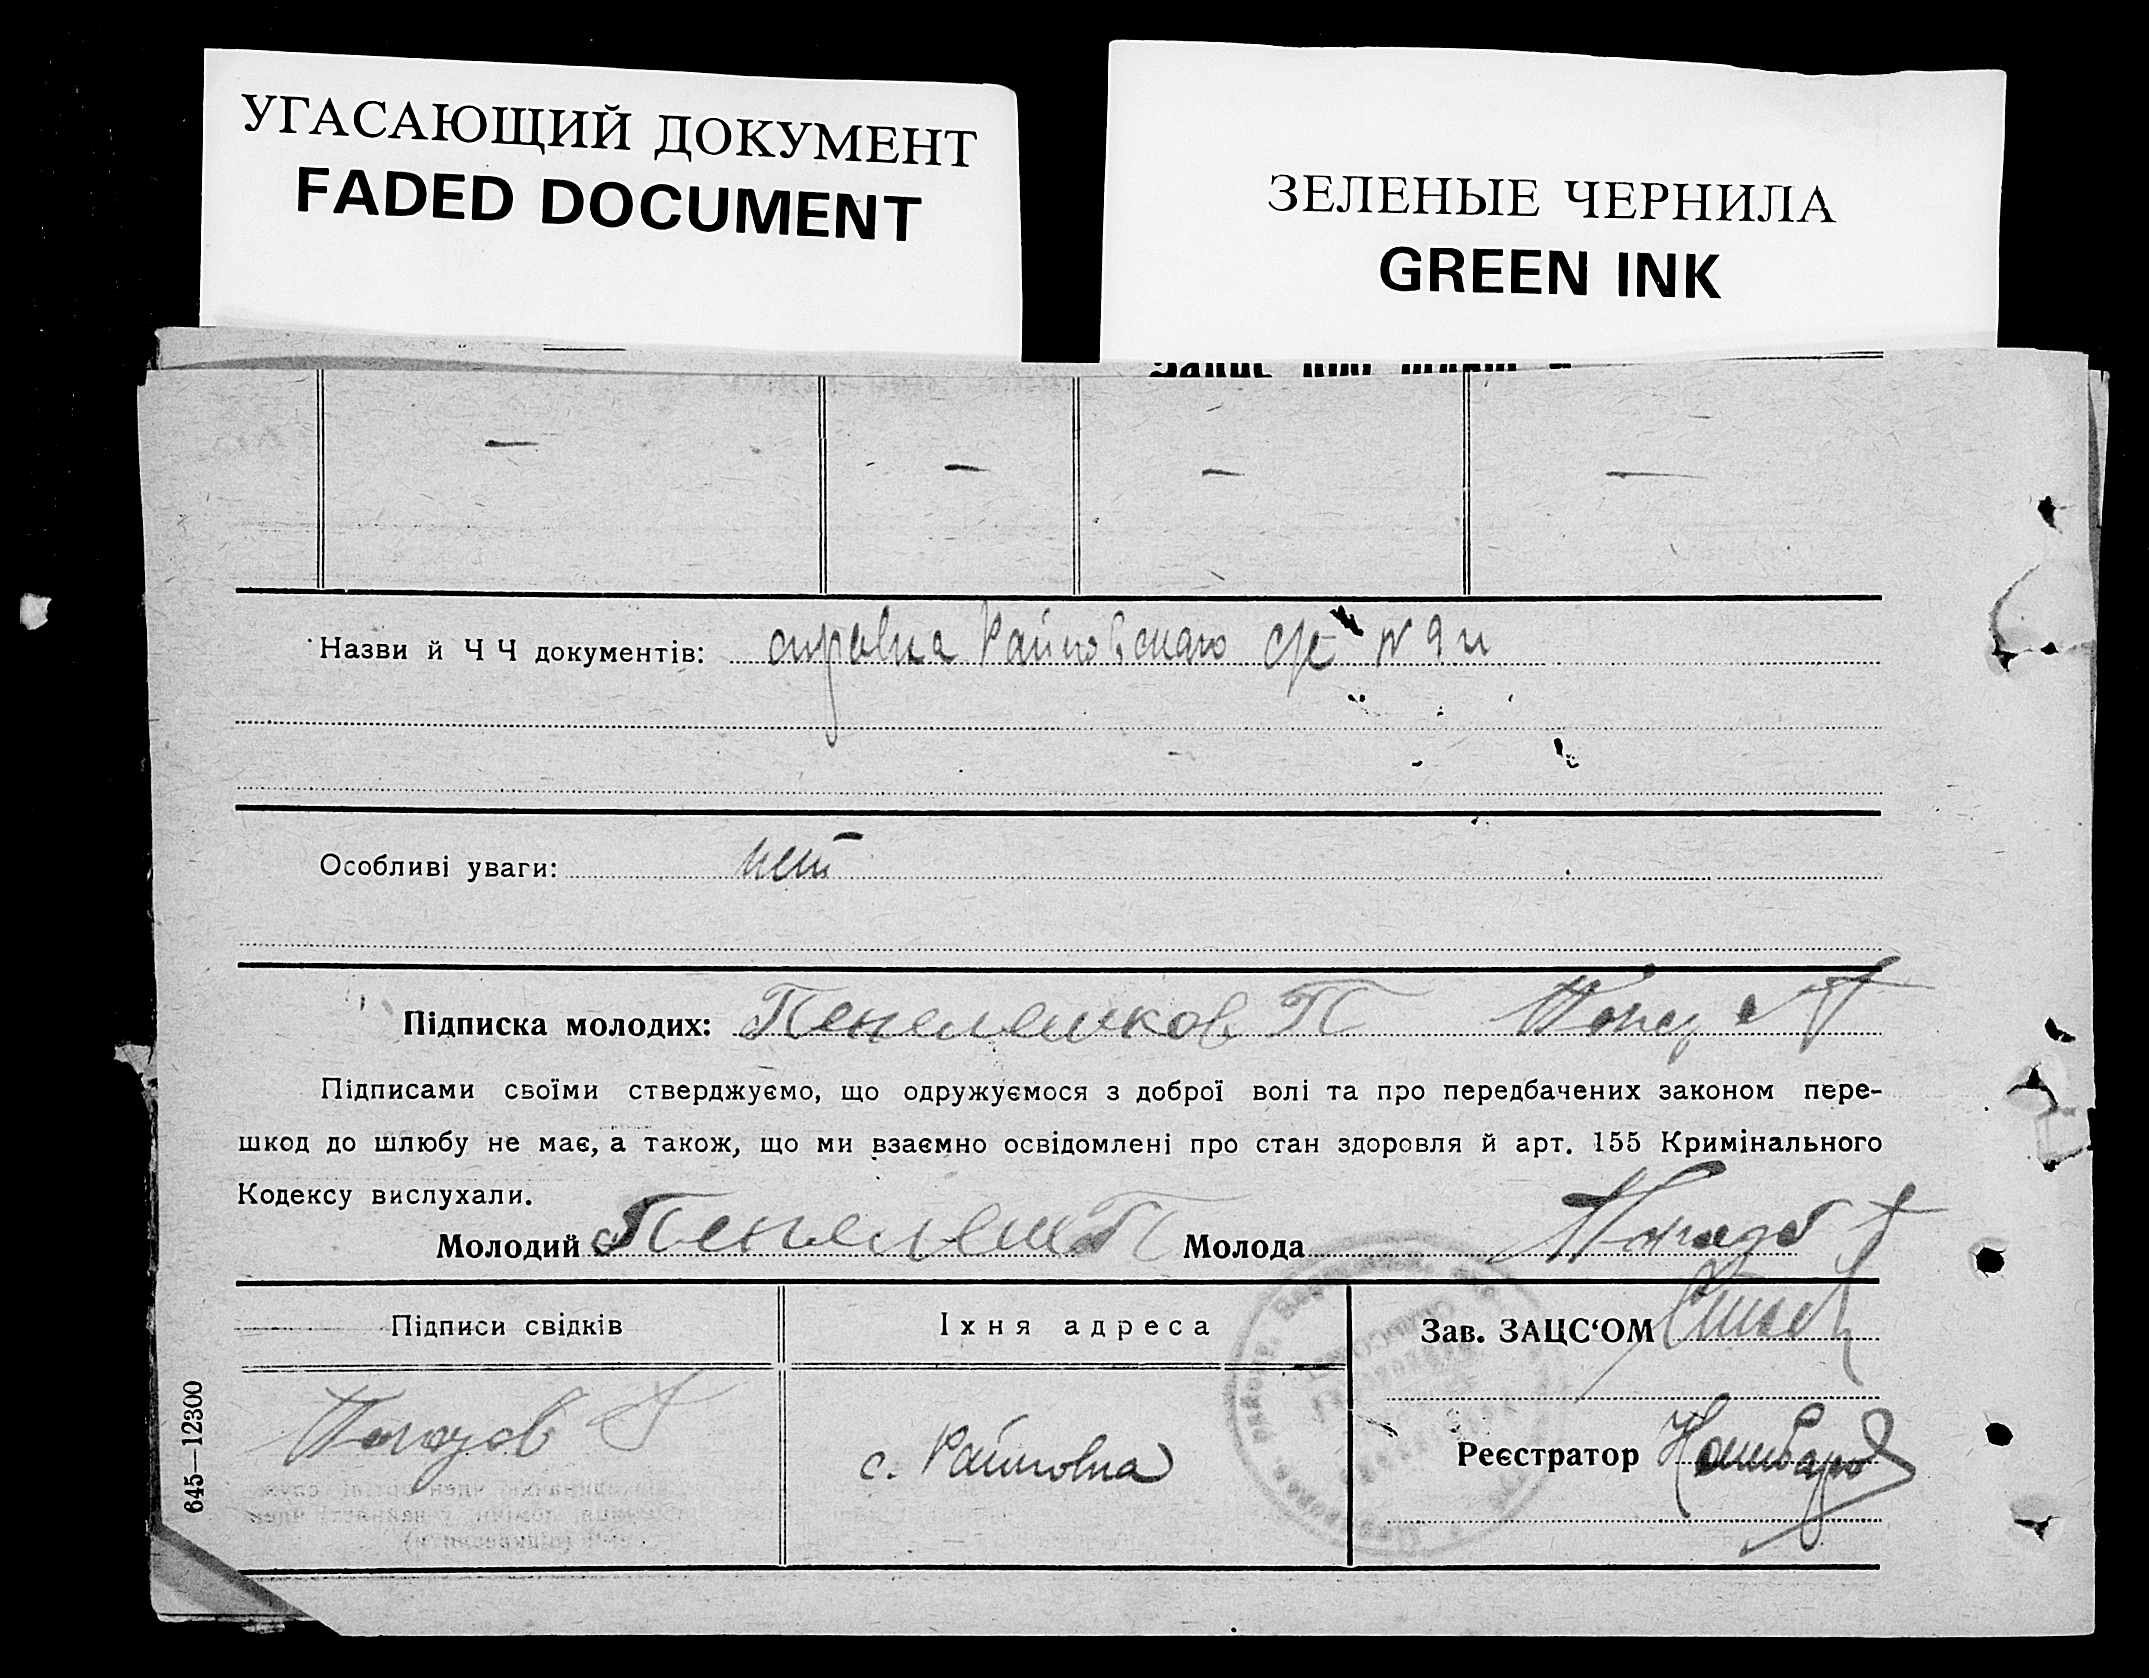 УГАСАЮЩИЙ ДОКУМЕНТ
FADED DOCUMENT
ЗЕЛЕНЫЕ ЧЕРНИЛА
GREEN INK
Назви й Ч Ч документів: справка Райновскаго с/с № 9
Особливі уваги: нет
Підписка молодих: Пенелешков П
Підписами своїми стверджуємо, що одружуємося з доброї волі та про передбачених законом пере-
шкод до шлюбу не має, а також, що ми взаємно освідомлені про стан здоровля й арт. 155 Кримінального
Кодексу вислухали.
Молодий Пенелеш П Молода
Підписи свідків Їхня адреса Зав. ЗАЦС‘ОМ
с. Райновка Реєстратор
645—12300